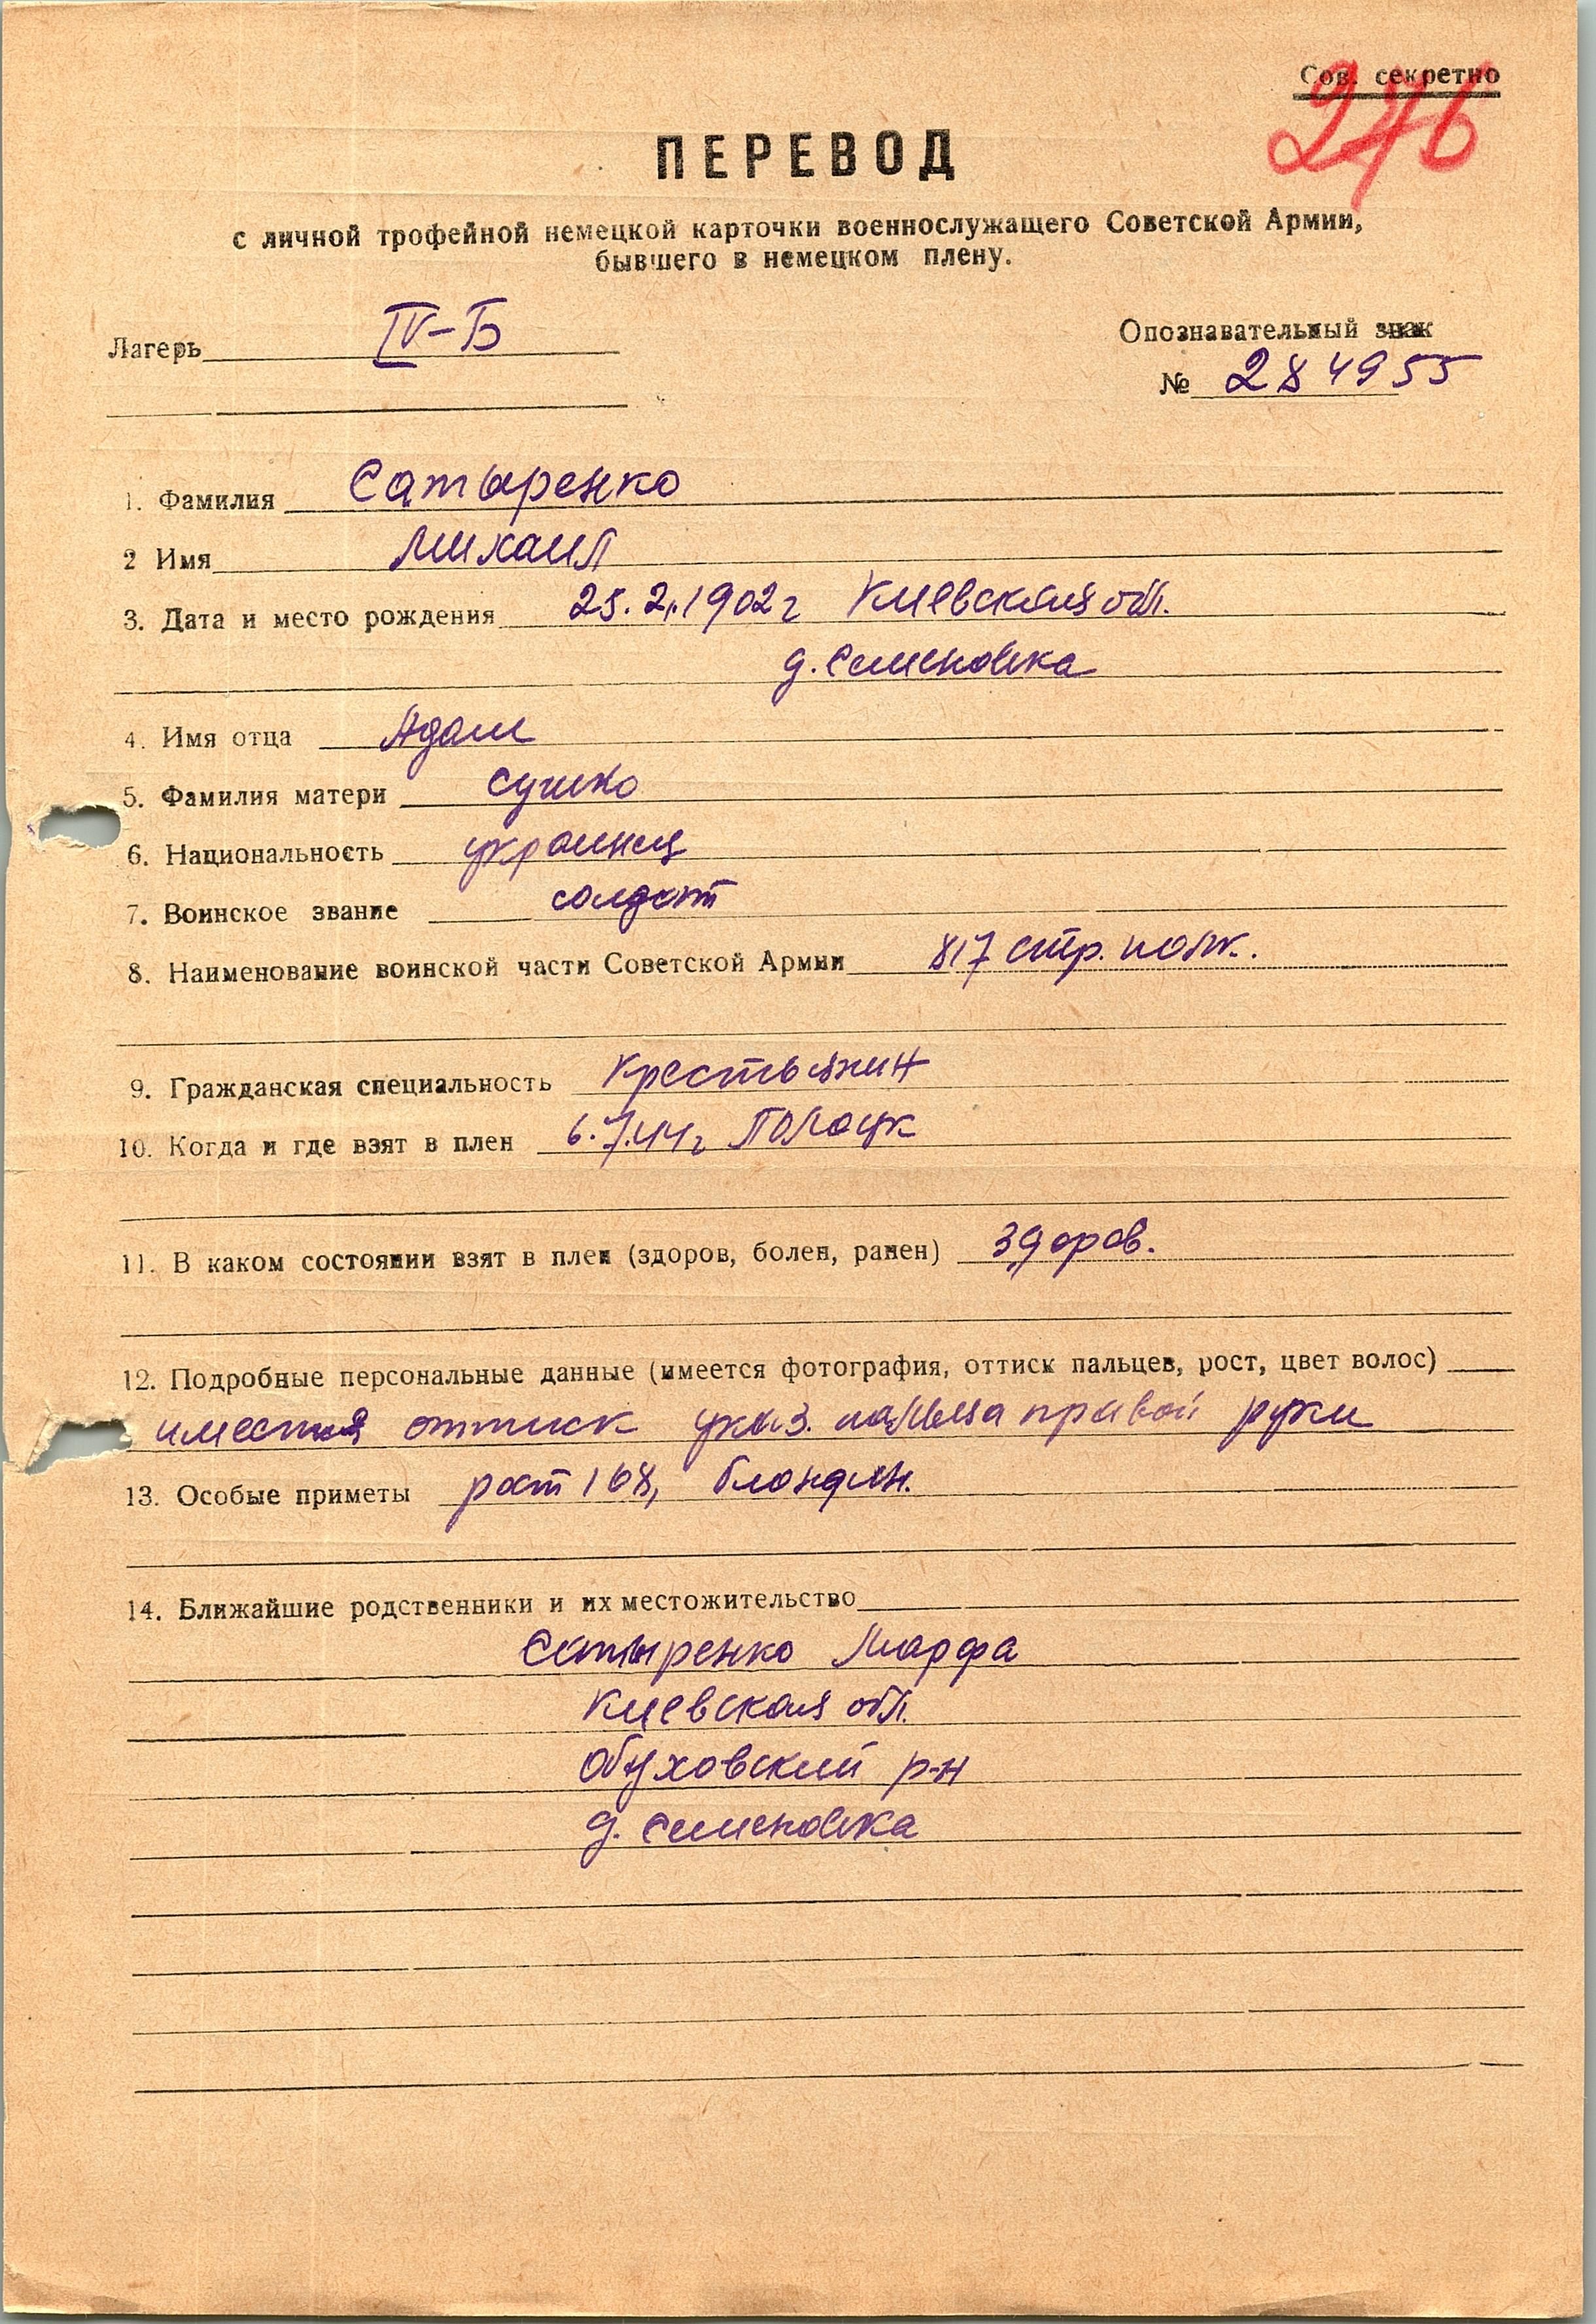 Сов. секретно
276
ПЕРЕВОД
с личной трофейной немецкой карточки военнослужащего Советской Армии,
бывшего в немецком плену.
Лагерь IV-Б
Опознавательный знак
№ 284955
1. Фамилия Сатыренко
2 Имя Михаил
3. Дата и место рождения 25.2.1902г Киевская обл.
д. Семеновка
4. Имя отца Адам
5. Фамилия матери Сушко
6. Национальность украинец
7. Воинское звание солдат
8. Наименование воинской части Советской Армии 817 стр. полк.
9. Гражданская специальность крестьянин
10. Когда и где взят в плен 6.7.44г Полоцк
11. В каком состоянии взят в плен (здоров, болен, ранен) здоров.
12. Подробные персональные данные (имеется фотография, оттиск пальцев, рост, цвет волос)
имеется оттиск указ. пальца правой руки
13. Особые приметы рост 168, блондин.
14. Ближайшие родственники и их местожительство
Сатыренко Марфа
Киевская обл.
Обуховский р-н
д. Семеновка